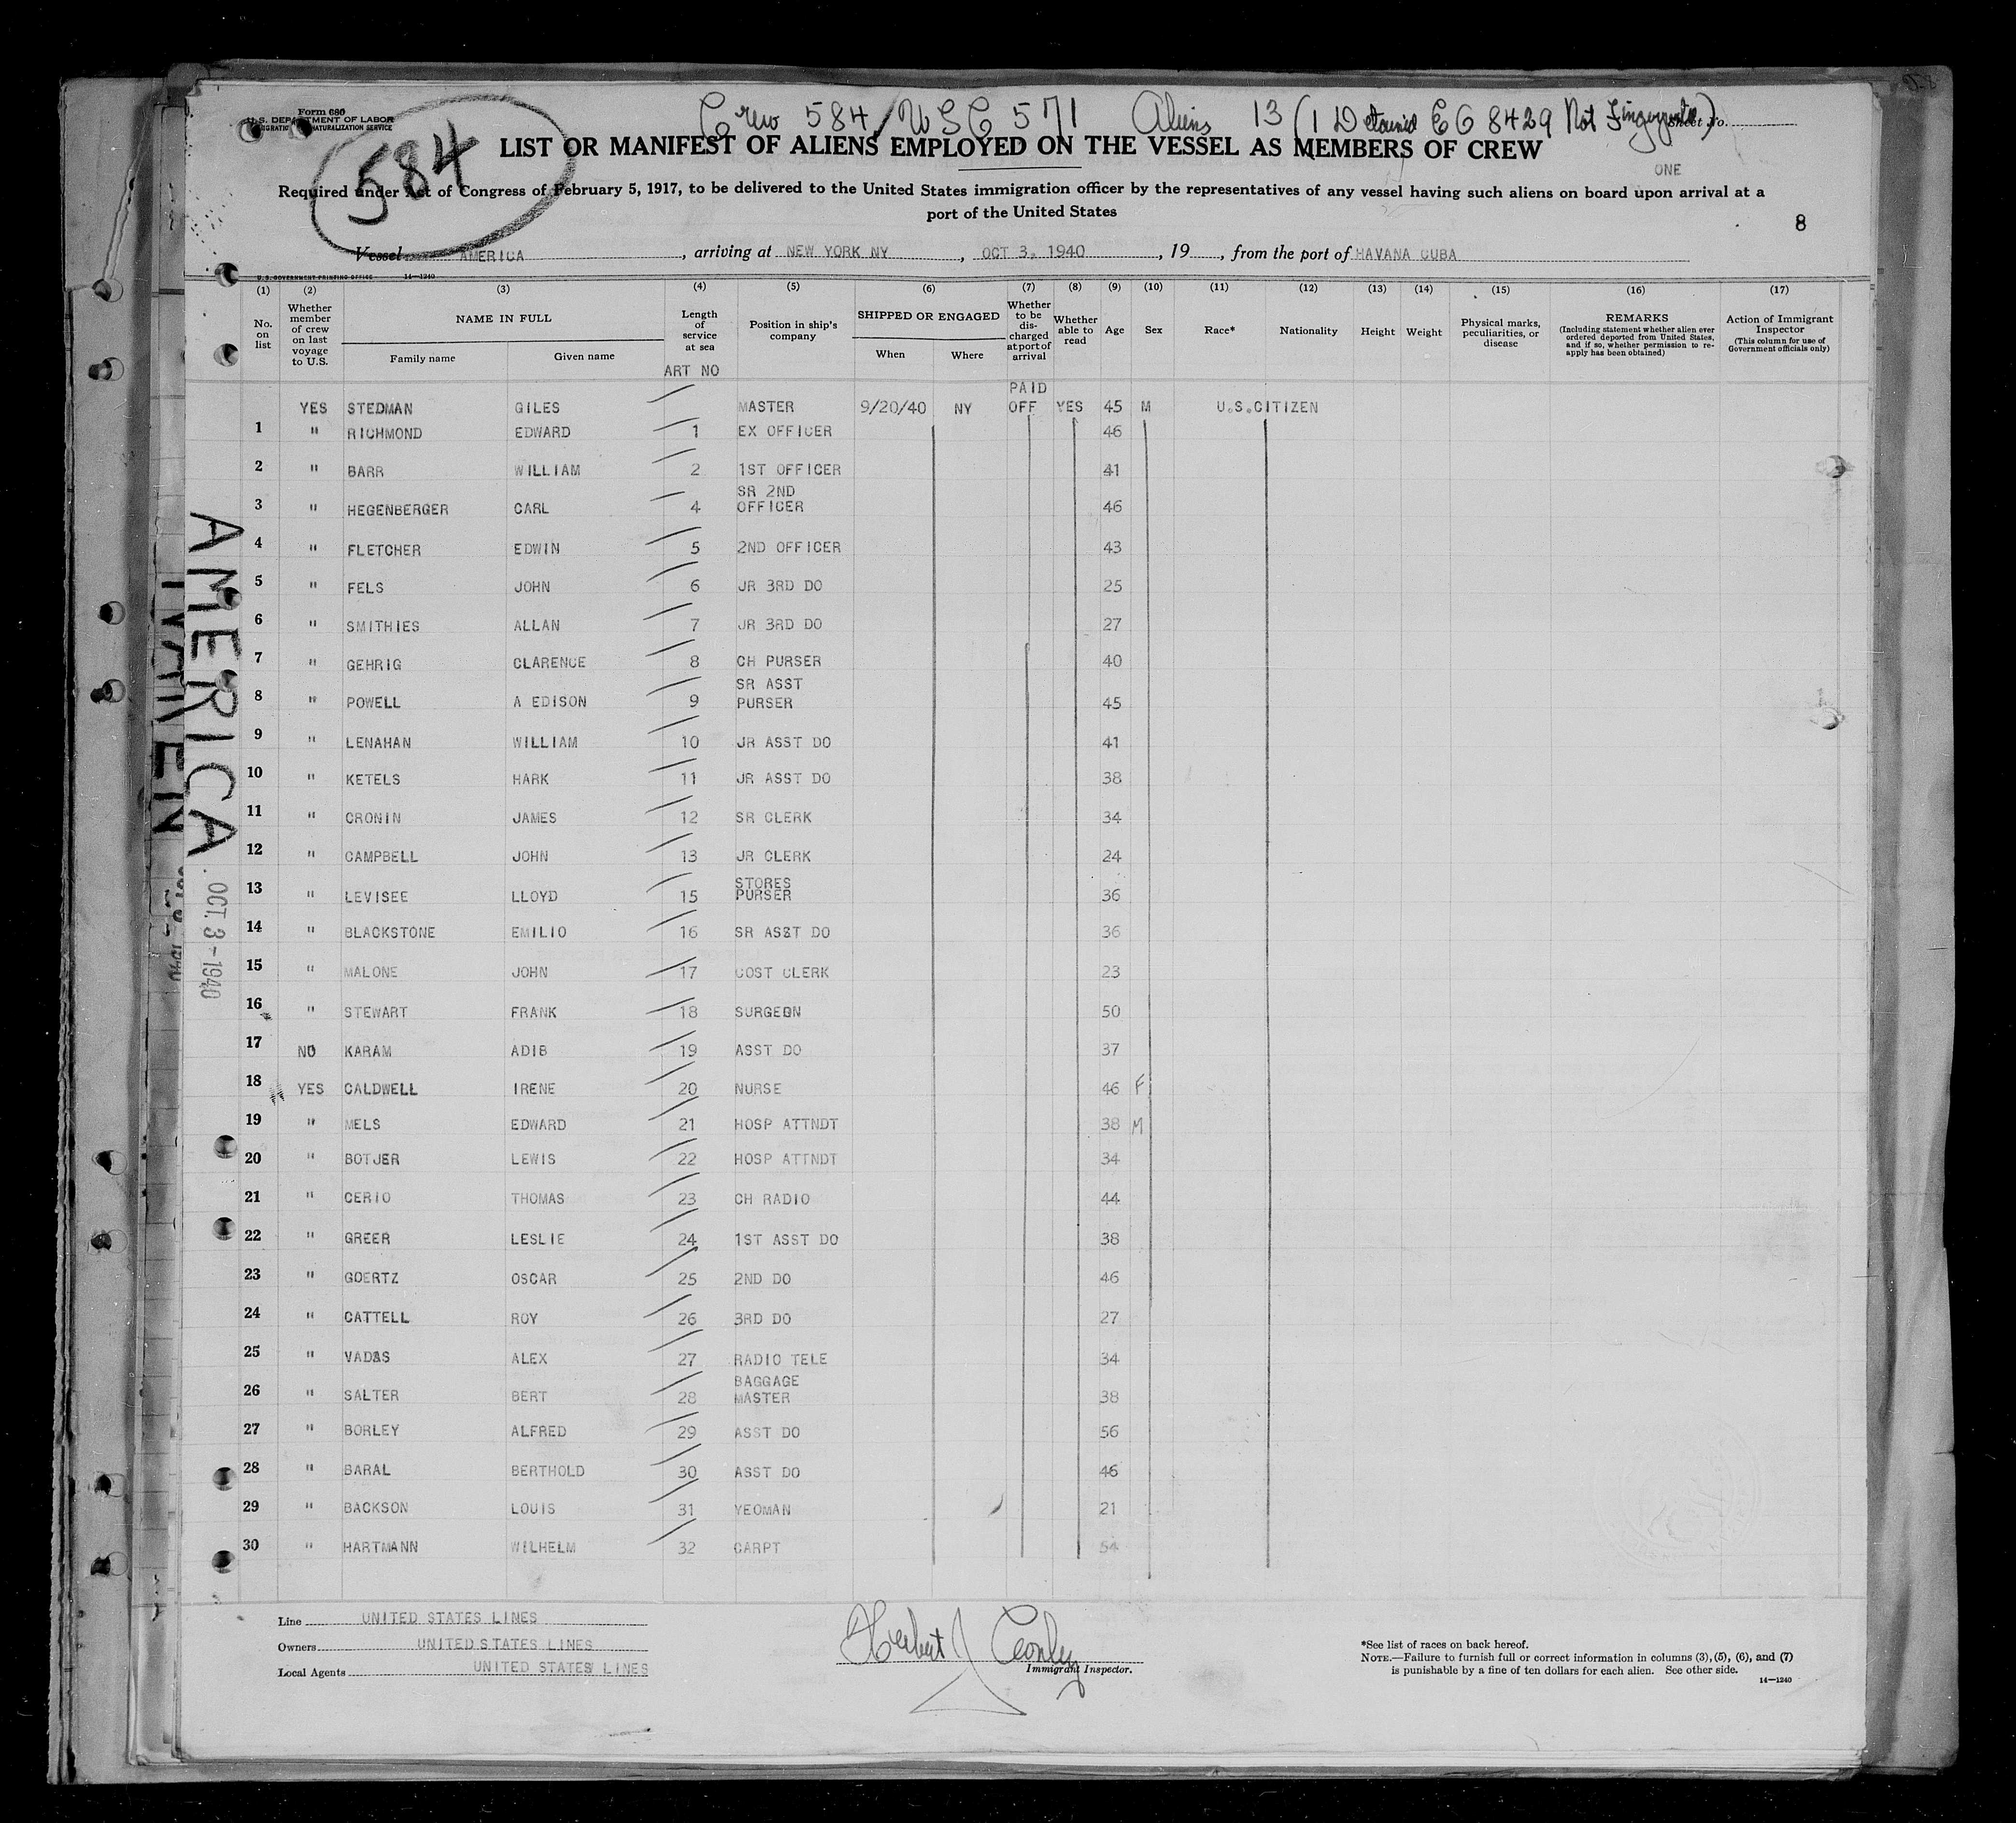 Form 680
U.S. DEPARTMENT OF LABOR
IMMIGRATION NATURALIZATION SERVICE
584
Crew 584 / USC 571 Aliens 13 (1 Detained EO 8429 Not Fingerprinted)
Sheet No.
ONE
LIST OR MANIFEST OF ALIENS EMPLOYED ON THE VESSEL AS MEMBERS OF CREW
Required under Act of Congress of February 5, 1917, to be delivered to the United States immigration officer by the representatives of any vessel having such aliens on board upon arrival at a
port of the United States
8
Vessel AMERICA, arriving at NEW YORK NY, OCT 3, 1940, 19, from the port of HAVANA CUBA
U.S. GOVERNMENT PRINTING OFFICE 14—1240
(1) (2) (3) (4) (5) (6) (7) (8) (9) (10) (11) (12) (13) (14) (15) (16) (17)
No. on list
Whether member of crew on last voyage to U.S.
NAME IN FULL
Family name Given name
Length of service at sea
ART NO
Position in ship's company
SHIPPED OR ENGAGED
When Where
Whether to be discharged at port of arrival
Whether able to read
Age
Sex
Race*
Nationality
Height
Weight
Physical marks, peculiarities, or disease
REMARKS
(Including statement whether alien ever ordered deported from United States, and if so, whether permission to reapply has been obtained)
Action of Immigrant Inspector
(This column for use of Government officials only)
YES STEDMAN GILES MASTER 9/20/40 NY PAID OFF YES 45 M U.S.CITIZEN
1 " RICHMOND EDWARD 1 EX OFFICER 46
2 " BARR WILLIAM 2 1ST OFFICER 41
3 " HEGENBERGER CARL 4 SR 2ND OFFICER 46
4 " FLETCHER EDWIN 5 2ND OFFICER 43
5 " FELS JOHN 6 JR 3RD DO 25
6 " SMITHIES ALLAN 7 JR 3RD DO 27
7 " GEHRIG CLARENCE 8 CH PURSER 40
8 " POWELL A EDISON 9 SR ASST PURSER 45
9 " LENAHAN WILLIAM 10 JR ASST DO 41
10 " KETELS HARK 11 JR ASST DO 38
11 " CRONIN JAMES 12 SR CLERK 34
12 " CAMPBELL JOHN 13 JR CLERK 24
13 " LEVISEE LLOYD 15 STORES PURSER 36
14 " BLACKSTONE EMILIO 16 SR ASST DO 36
15 " MALONE JOHN 17 COST CLERK 23
16 " STEWART FRANK 18 SURGEON 50
17 NO KARAM ADIB 19 ASST DO 37
18 YES CALDWELL IRENE 20 NURSE 46 F
19 " MELS EDWARD 21 HOSP ATTNDT 38 M
20 " BOTJER LEWIS 22 HOSP ATTNDT 34
21 " CERIO THOMAS 23 CH RADIO 44
22 " GREER LESLIE 24 1ST ASST DO 38
23 " GOERTZ OSCAR 25 2ND DO 46
24 " CATTELL ROY 26 3RD DO 27
25 " VADAS ALEX 27 RADIO TELE 34
26 " SALTER BERT 28 BAGGAGE MASTER 38
27 " BORLEY ALFRED 29 ASST DO 56
28 " BARAL BERTHOLD 30 ASST DO 46
29 " BACKSON LOUIS 31 YEOMAN 21
30 " HARTMANN WILHELM 32 CARPT 54
AMERICA
OCT. 3-1940
Line UNITED STATES LINES
Owners UNITED STATES LINES
Local Agents UNITED STATES LINES
Herbert J Conley
Immigrant Inspector.
*See list of races on back hereof.
NOTE.—Failure to furnish full or correct information in columns (3), (5), (6), and (7)
is punishable by a fine of ten dollars for each alien. See other side.
14—1240